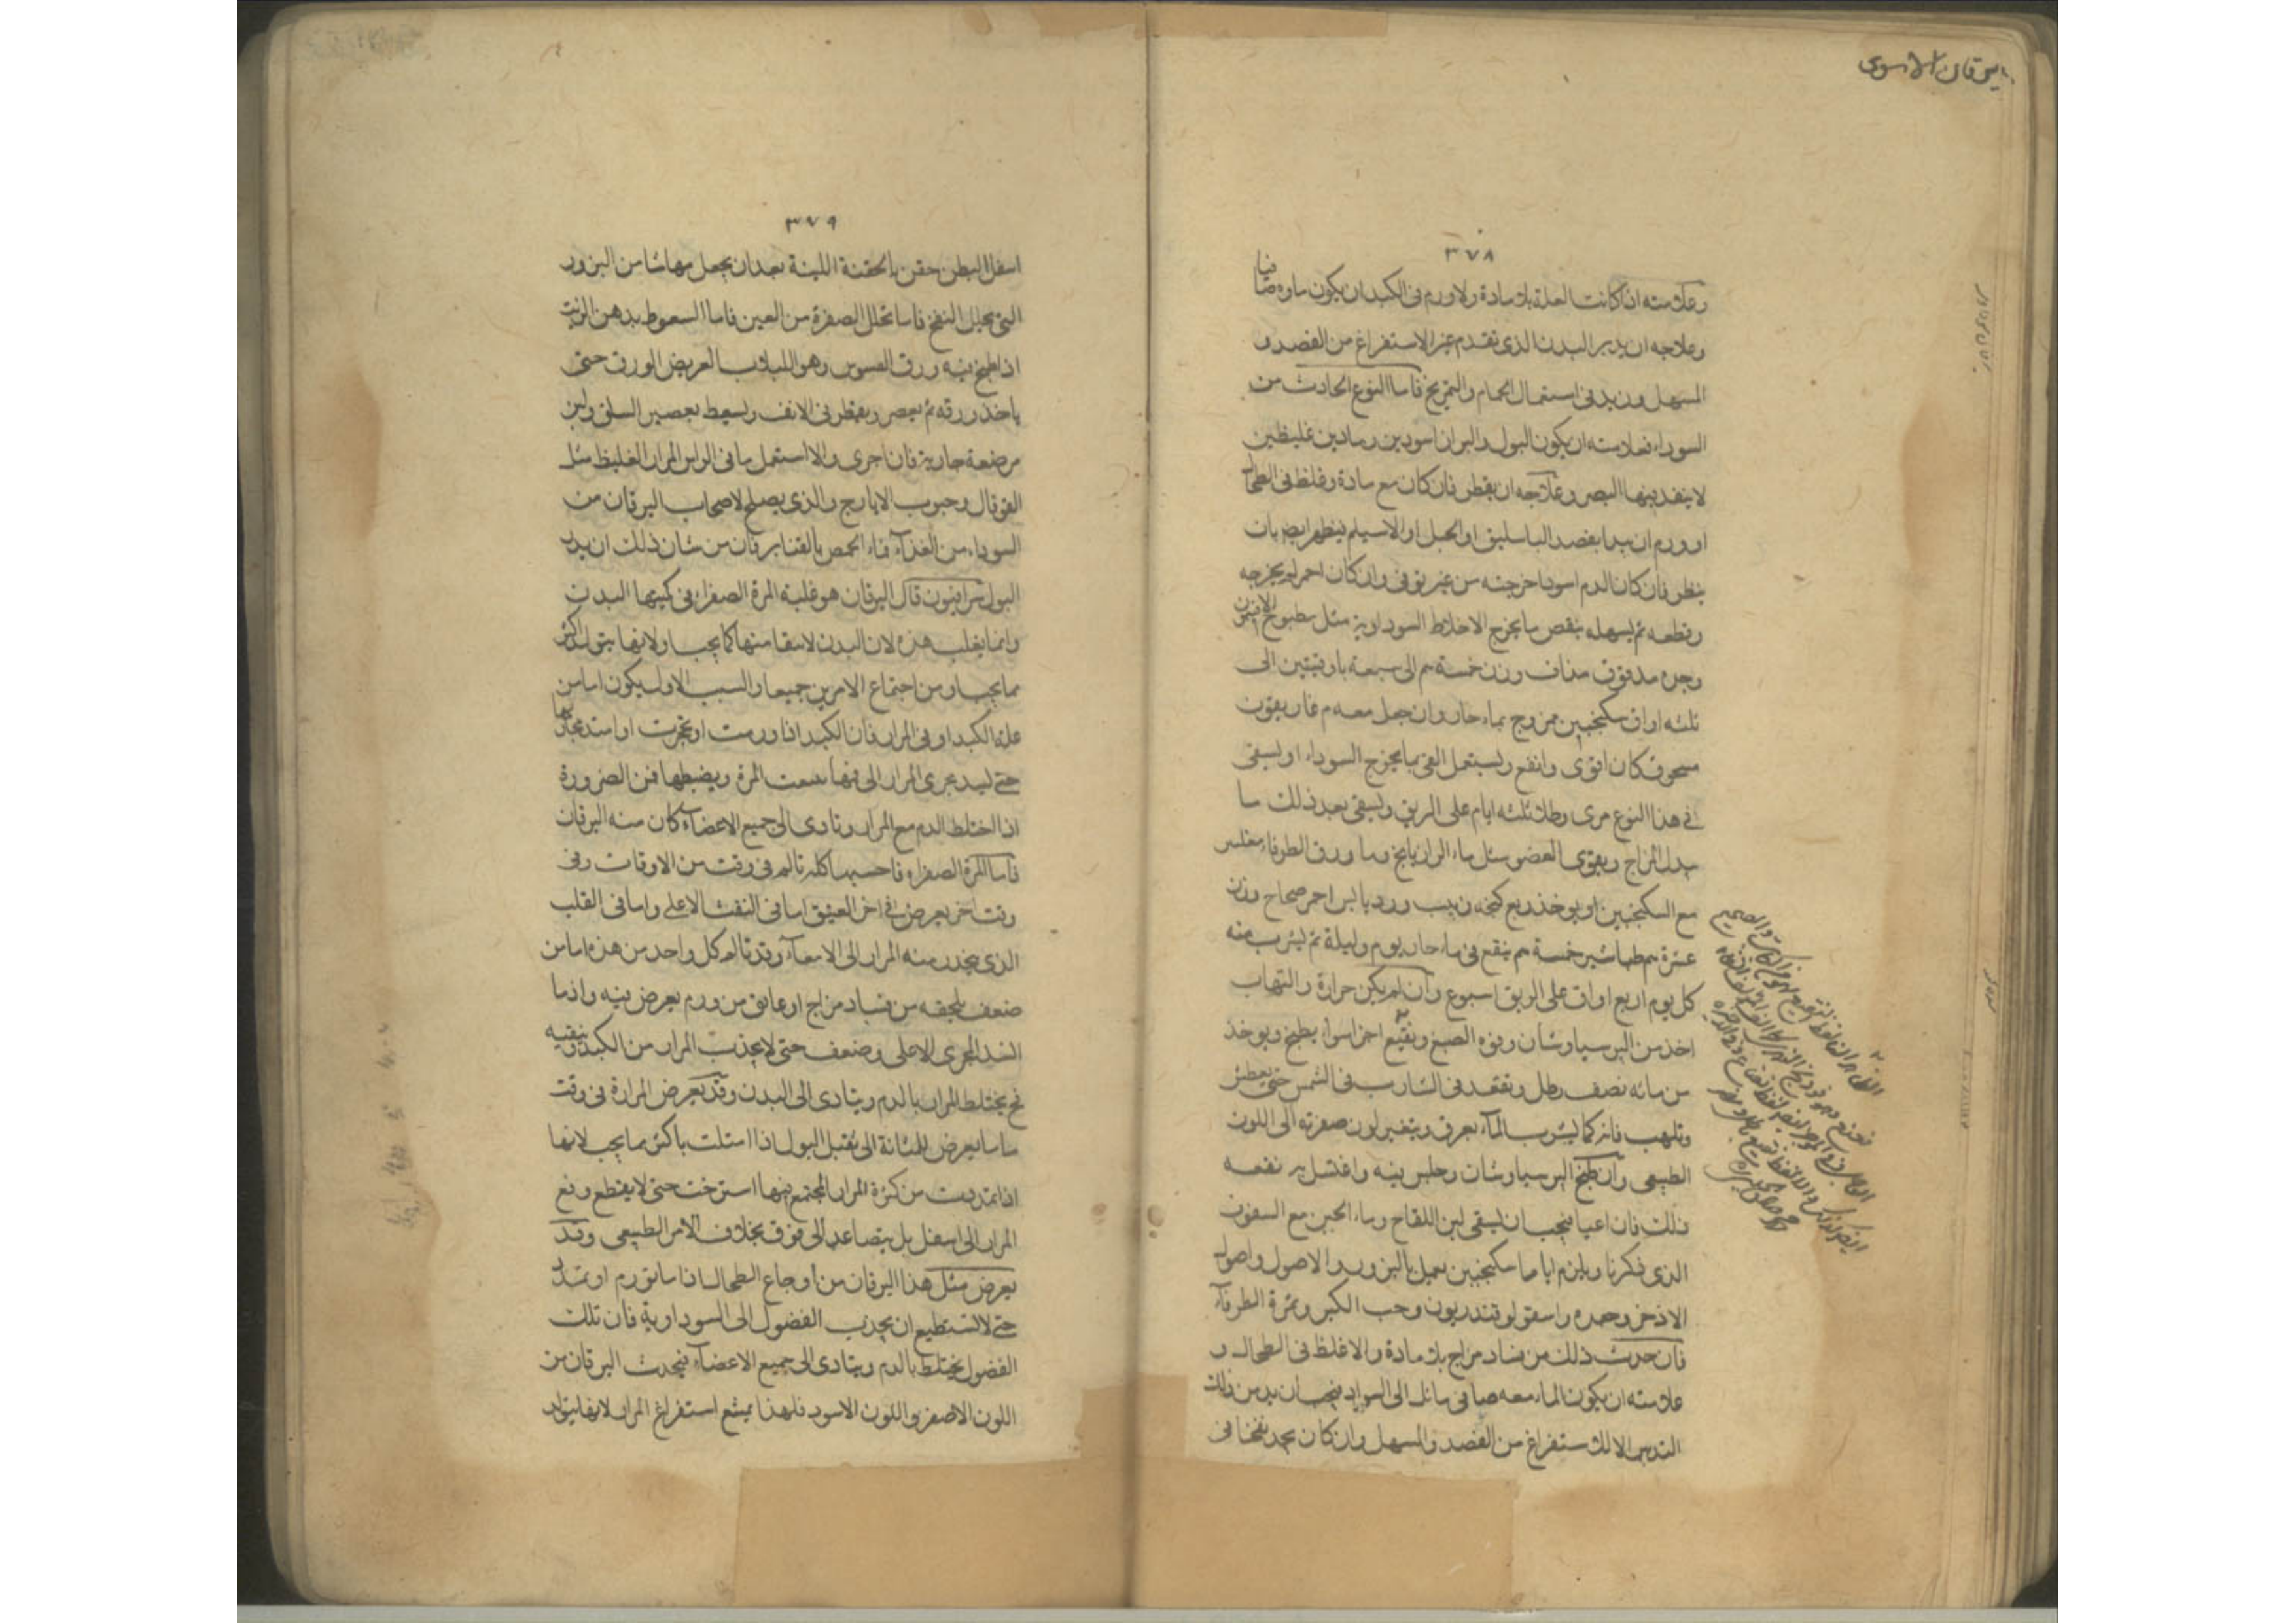 اليرقان الاسود
٣٧٨
وعلامته ان كانت العلة بلا مادة ولا ورم في الكبد ان يكون ماؤه صافيا
وعلاجه ان يدبر البدن الذي تقدم غير الاستفراغ من الفصد و
المسهل ويزيد في استعمال الحمام والتمريخ فاما النوع الحادث من
السوداء فعلامته ان يكون البول والبراز اسودين رمادين غليظين
لا ينفذ فيها البصر وعلاجه ان ينظر فان كان مع مادة وغلظ في الطحال
او ورم ان يبدا بفصد الباسليق او الحبل او الاسيلم
ينظر فان كان الدم اسود اخرجته من غير توقي وان كان احمر لم يخرجه
وقطعه ثم يسهله بنقص ما يخرج الاخلاط السوداوية مثل مطبوخ الافتيمون
وحده مدقوق مداف وزن خمسة م الى سبعة باوقيتين الى
ثلثه اواق سكنجبين ممزوج بماء حار وان جعل معه م غاريقون
مسحوق كان اقوى وانفع ويستعمل القي بما يخرج السوداء او يسقى
في هذا النوع مرى وطلا ثلثه ايام على الريق ويسقى بعد ذلك ما
يبدل المزاج ويقوى العضو مثل ماء الرازيانج وماء ورق الطرفاء مغلى
مع السكنجبين او يوخذ ربع كيجه زبيب وورد يابس احمر صحاح وزن
عشرة م طباشير خمسة م ينقع في ماء حار يوم وليلة ثم يشرب منه
كل يوم اربع اواق على الريق اسبوع وان لم يكن حرارة والتهاب
اخذ من البرسياوشان وفوه الصبغ ونقيع اجزا سواء يطبخ ويوخذ
من مائه نصف رطل ويقعد في الشارب في الشمس حتى يعطش
وتلهب فانه كما يشرب الماء يعرق ويتغير لون صفرته الى اللون
الطبيعي وان طبخ البرسياوشان وجلس فيه واغتسل به نفعه
ذلك فان اعيا فيجب ان يسقى لبن اللقاح وماء الجبن مع السفوف
الذي ذكرنا ويلزم اياما سكنجبين يعمل بالبزور والاصول واصول
الاذخر وحده واسقولوقندريون وحب الكبر وثمرة الطرفاء
فان حدث ذلك من فساد مزاج بلا مادة ولا غلظ في الطحال و
علامته ان يكون الماء معه صافي مائل الى السواد فيجب ان يدبر من ذلك
التدبير الا الاستفراغ من الفصد والمسهل وان كان يجد نفخا في
٣٧٩
اسفل البطن حقن بالحقنة اللينة بعد ان يجعل فيها شيا من البزور
التي يحلل النفخ فاما تحلل الصفرة من العين فاما السعوط بدهن الزيت
اذا طبخ فيه ورق القسوس وهو اللبلاب العريض الورق حتى
ياخذ ورقه ثم يعصر ويقطر في الانف ويسعط بعصير السلق ولبن
مرضعة جارية فان اجرى والا استعمل ما في الراس المرار الغليظ مثل
القوقايا وحبوب الايارج والذي يصلح لاصحاب اليرقان من
السوداء من الغذاء ماء الحمص بالقنابر فان من شان ذلك ان يدر
البول سرابيون قال اليرقان هو غلبة المرة الصفراء في البدن
وانما يغلب هذه لان البدن لا ينقا منها كما يجب او لانها يتولد اكثر
مما يجب او من اجتماع الامرين جميعا والسبب الاول يكون اما من
علة الكبد او في المرار فان الكبد اذا ورمت او تحجرت او استد مجاريها
حتى يسد مجرى المرار الى فمها المرة ويضبطها فمن الضرورة
اذا اختلط الدم مع المرار وتادى الى جميع الاعضاء كان منه اليرقان
فاما المرة الصفراء فاحسبها كله تالم في وقت من الاوقات وفي
وقت اخر يعرض في اخر العينق اما في الثقب الاعلى واما في القلب
الذي ينحدر منه المرار الى الامعاء وقد تالم كل واحد من هذه اما من
ضعف يلحقه من فساد مزاج او عايق من ورم يعرض فيه واذا
انسد المجرى الاعلى وضعف حتى لا يجذب المرار من الكبد وينقيه
فح يختلط المرار بالدم ويتادى الى البدن وقد يعرض المرارة في وقت
ما ما يعرض للمثانة التي تقبل البول اذا امتلت باكثر مما يجب لانها
اذا تمددت من كثرة المرار المجتمع فيها استرخت حتى لا يقطع ودفع
المرار الى اسفل بل يتصاعد الى فوق بخلاف الامر الطبيعي وقد
يعرض مثل هذا اليرقان من اوجاع الطحال اذا ما تورم او تمدد
حتى لا يستطيع ان يجذب الفضول الى السوداوية فان تلك
الفضول يختلط بالدم ويتادى الى جميع الاعضاء فيحدث اليرقان من
اللون الاصفر واللون الاسود فلهذا يمتنع استفراغ المرار لانها يتولد